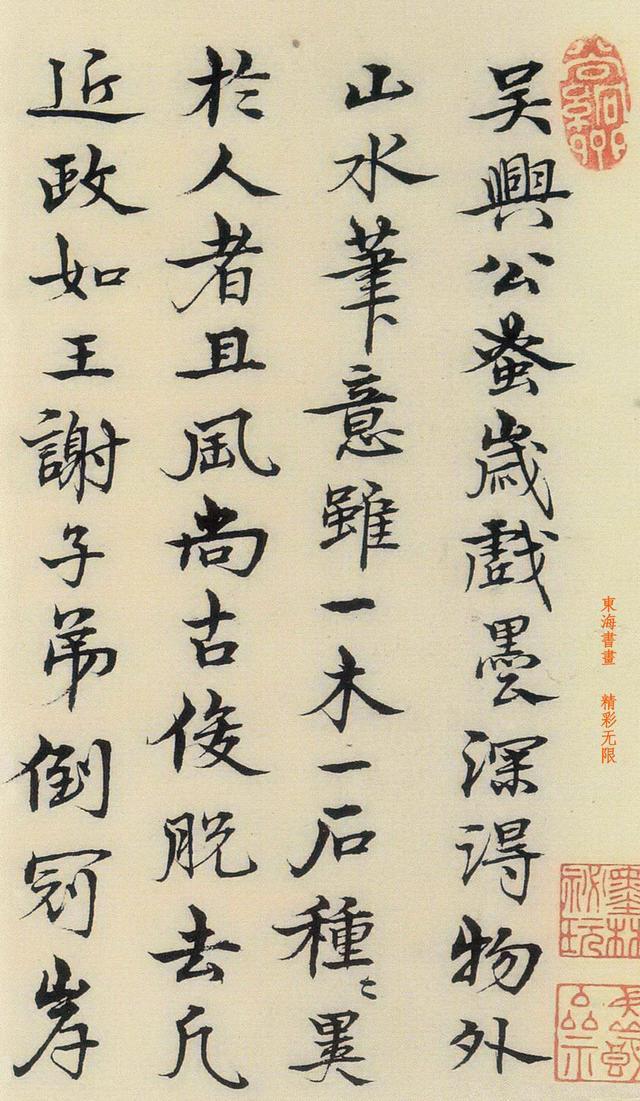 吴興公蚤歲戲墨深得物外
山水筆意雖一木一石種々異
於人者且風尚古俊脱去凡
近政如王謝子弟倒冠岸
東海書畫 精彩无限
墨林秘玩